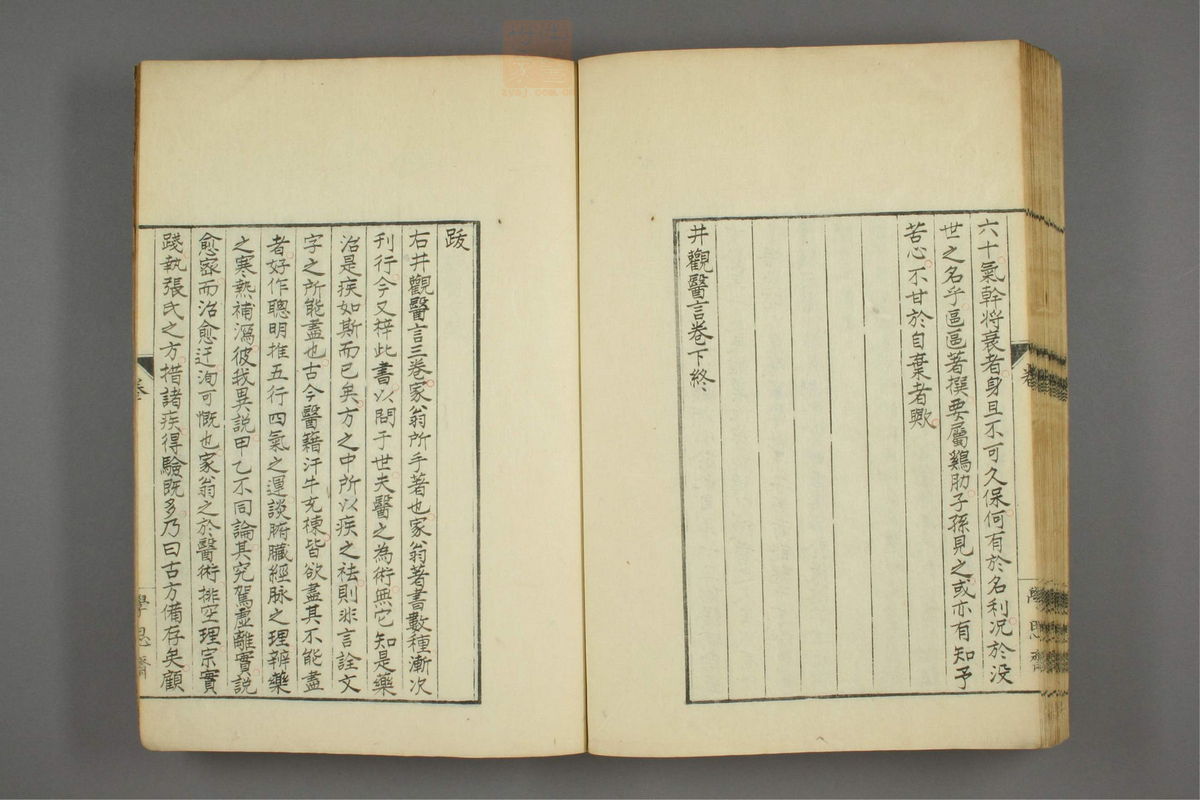 六十氣幹將衰者身且不可久保何有於名利况於没
世之名乎區區著撰要屬鷄肋子孫見之或亦有知予
苦心不甘於自棄者歟
井觀醫言卷下終
跋
右井觀醫言三卷家翁所手著也家翁著書數種漸次
刊行今又梓此書以問于世夫醫之為術無它知是藥
治是疾如斯而已矣方之中所以疾之祛則非言詮文
字之所能盡也古今醫籍汗牛充棟皆欲盡其不能盡
者好作聰明推五行四氣之運談腑臟經脉之理辨藥
之寒熱補瀉彼我異說甲乙不同論其究駕虛離實說
愈密而治愈迂洵可慨也家翁之於醫術排空理宗實
踐執張氏之方措諸疾得驗既多乃曰古方備存矣顧
學思齋